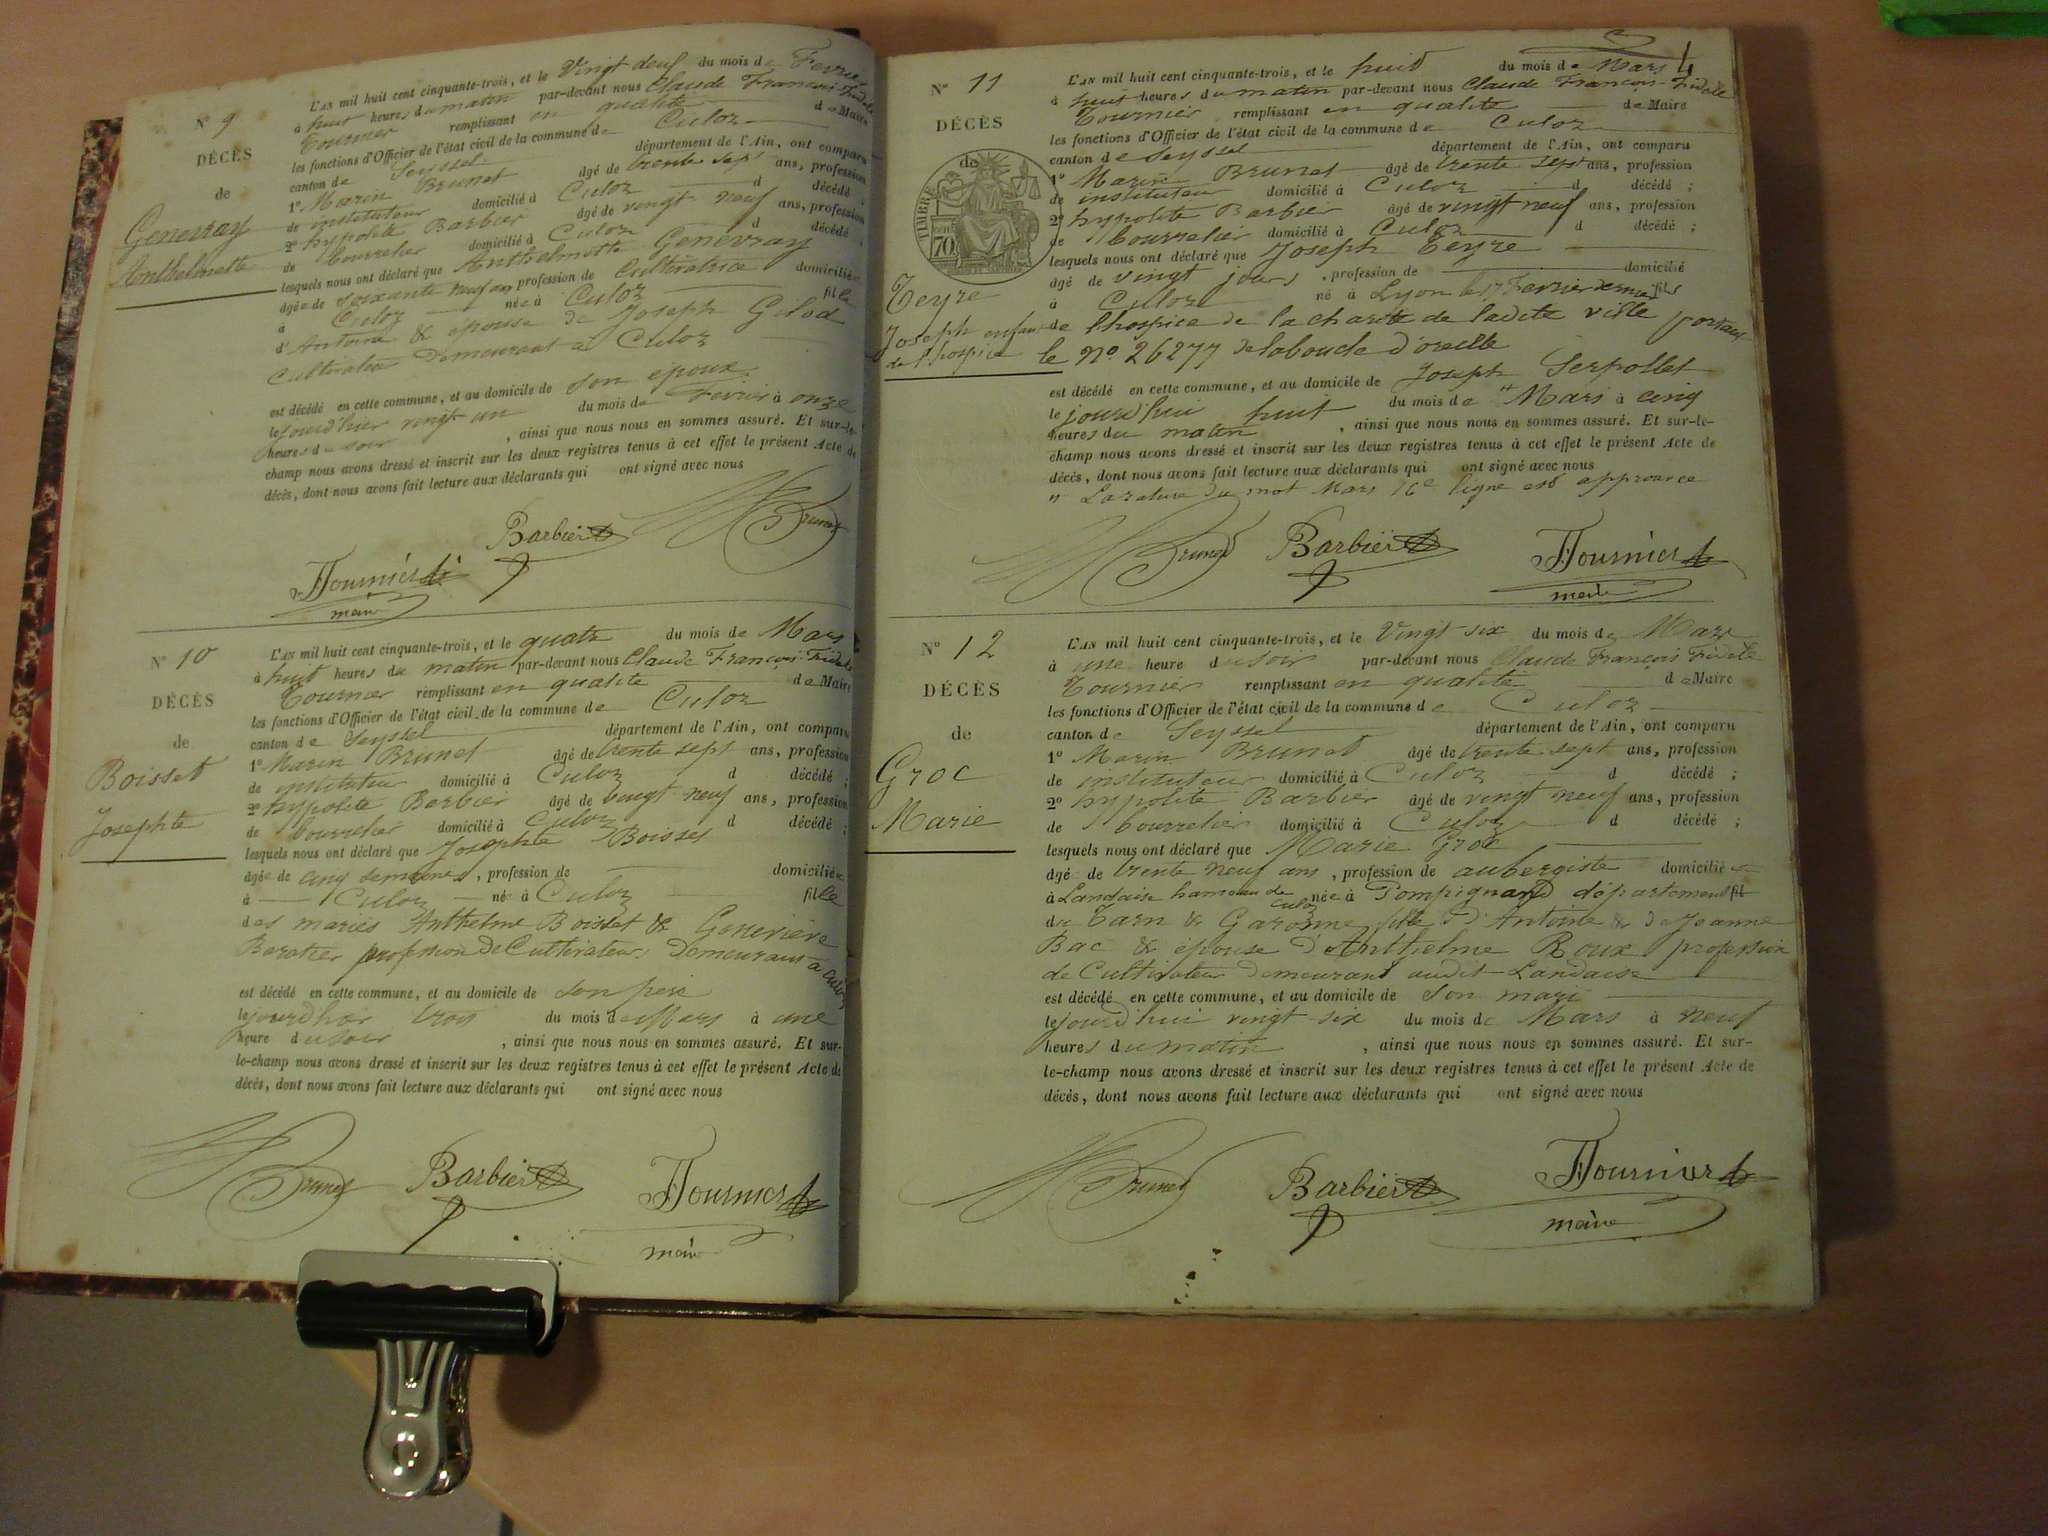 N° 9
DÉCÈS
de
Genevray
Anthelmette
L'AN mil huit cent cinquante-trois, et le Vingt deux du mois de Fevrier
à huit heures du matin par-devant nous Claude François Fidele
Tournier remplissant en qualité de Maire
les fonctions d'Officier de l'état civil de la commune de Culoz
canton de Seyssel département de l'Ain, ont comparu
1° Marin Brunet âgé de trente sept ans, profession
de instituteur domicilié à Culoz d décédé ;
2° hypolite Barbier âgé de vingt neuf ans, profession
de bourrelier domicilié à Culoz d décédé ;
lesquels nous ont déclaré que Anthelmette Genevray
âgée de soixante neuf ans profession de Cultivatrice domiciliée
à Culoz née à Culoz fille
d'Antoine & épouse de Joseph Gilod
Cultivateur demeurant à Culoz
est décédé en cette commune, et au domicile de son epoux
le jourd'hier vingt un du mois de Fevrier à onze
heures du soir , ainsi que nous nous en sommes assuré. Et sur-le-
champ nous avons dressé et inscrit sur les deux registres tenus à cet effet le présent Acte de
décès, dont nous avons fait lecture aux déclarants qui ont signé avec nous
Brunet
Barbier
Tournier
maire
N° 10
DÉCÈS
de
Boisset
Josephte
L'AN mil huit cent cinquante-trois, et le quatre du mois de Mars
à huit heures du matin par-devant nous Claude François Fidele
Tournier remplissant en qualité de Maire
les fonctions d'Officier de l'état civil de la commune de Culoz
canton de Seyssel département de l'Ain, ont comparu
1° Marin Brunet âgé de trente sept ans, profession
de instituteur domicilié à Culoz d décédé ;
2° hypolite Barbier âgé de vingt neuf ans, profession
de bourrelier domicilié à Culoz d décédé ;
lesquels nous ont déclaré que Josephte Boisset
âgée de cinq semaines, profession de domiciliée
à Culoz né à Culoz fille
des mariés Anthelme Boisset & Genevieve
Baratier profession de Cultivateurs demeurant à Culoz
est décédé en cette commune, et au domicile de son père
le jourd'hier trois du mois de Mars à une
heure du soir , ainsi que nous nous en sommes assuré. Et sur-
le-champ nous avons dressé et inscrit sur les deux registres tenus à cet effet le présent Acte de
décès, dont nous avons fait lecture aux déclarants qui ont signé avec nous
Brunet Barbier Tournier
maire
4
N° 11
DÉCÈS
de
TIMBRE
70
Teyre
Joseph enfant
de l'hospice
L'AN mil huit cent cinquante-trois, et le huit du mois de Mars
à huit heures du matin par-devant nous Claude François Fidele
Tournier remplissant en qualité de Maire
les fonctions d'Officier de l'état civil de la commune de Culoz
canton de Seyssel département de l'Ain, ont comparu
1° Marin Brunet âgé de trente sept ans, profession
de instituteur domicilié à Culoz d décédé ;
2° hypolite Barbier âgé de vingt neuf ans, profession
de bourrelier domicilié à Culoz d décédé ;
lesquels nous ont déclaré que Joseph Teyre
âgé de vingt jours , profession de domicilié
à Culoz né à Lyon le 17 Fevrier dernier fils
de l'hospice de la charité de ladite ville portant
le N° 26277 de la boucle d'oreille
est décédé en cette commune, et au domicile de Joseph Serpollet
le jourd'hui huit du mois de " Mars à cinq
heures du matin , ainsi que nous nous en sommes assuré. Et sur-le-
champ nous avons dressé et inscrit sur les deux registres tenus à cet effet le présent Acte de
décès, dont nous avons fait lecture aux déclarants qui ont signé avec nous
" La rature du mot Mars 16e ligne est approuvée
Brunet Barbier Tournier
maire
N° 12
DÉCÈS
de
Groc
Marie
L'AN mil huit cent cinquante-trois, et le Vingt-six du mois de Mars
à une heure du soir par-devant nous Claude François Fidele
Tournier remplissant en qualité de Maire
les fonctions d'Officier de l'état civil de la commune de Culoz
canton de Seyssel département de l'Ain, ont comparu
1° Marin Brunet âgé de trente sept ans, profession
de instituteur domicilié à Culoz d décédé ;
2° hypolite Barbier âgé de vingt neuf ans, profession
de bourrelier domicilié à Culoz d décédé ;
lesquels nous ont déclaré que Marie Groc
âgée de trente neuf ans , profession de aubergiste domiciliée
à Landaise hameau de Culoz née à Pompignand département fil
du Tarn & Garonne fille d'Antoine & de Jeanne
Bac & épouse d'Anthelme Roux profession
de Cultivateur demeurant audit Landaise
est décédé en cette commune, et au domicile de son mari
le jourd'hui vingt-six du mois de Mars à neuf
heures du matin , ainsi que nous nous en sommes assuré. Et sur-
le-champ nous avons dressé et inscrit sur les deux registres tenus à cet effet le présent Acte de
décès, dont nous avons fait lecture aux déclarants qui ont signé avec nous
Brunet Barbier Tournier
maire